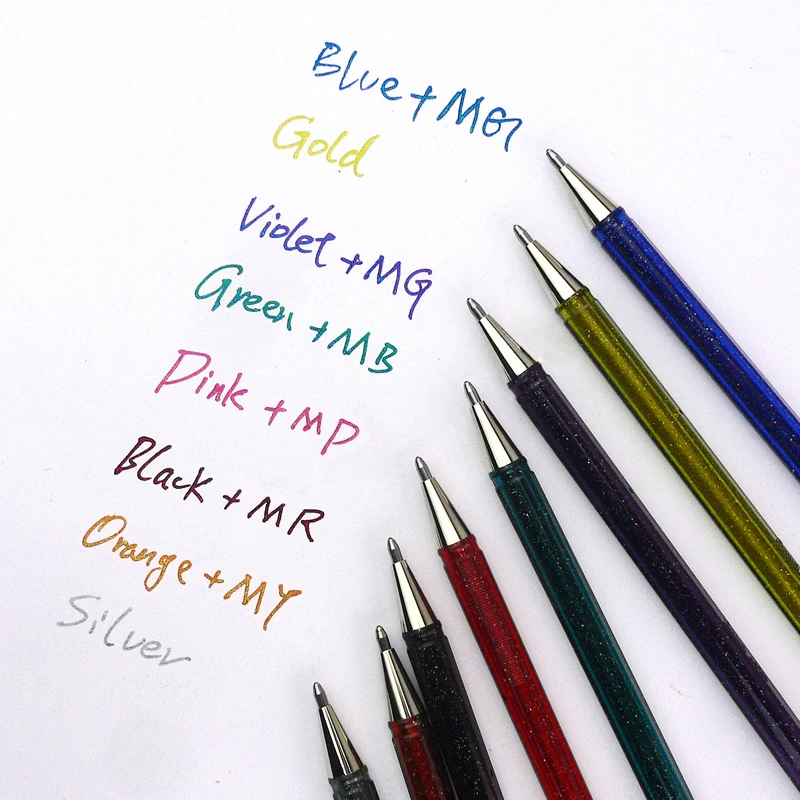 Blue + MG
Gold
Violet + MG
Green + MB
Pink + MP
Black + MR
Orange + MY
Silver